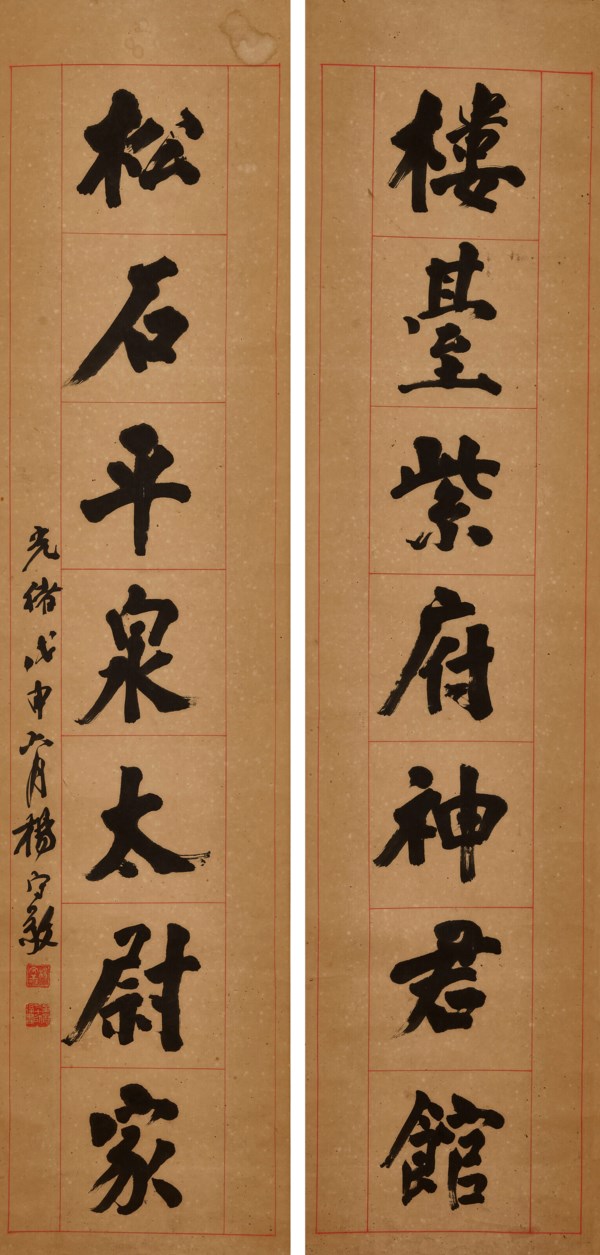 樓臺紫府神君館
松石平泉太尉家
光緒戊申六月楊守敬